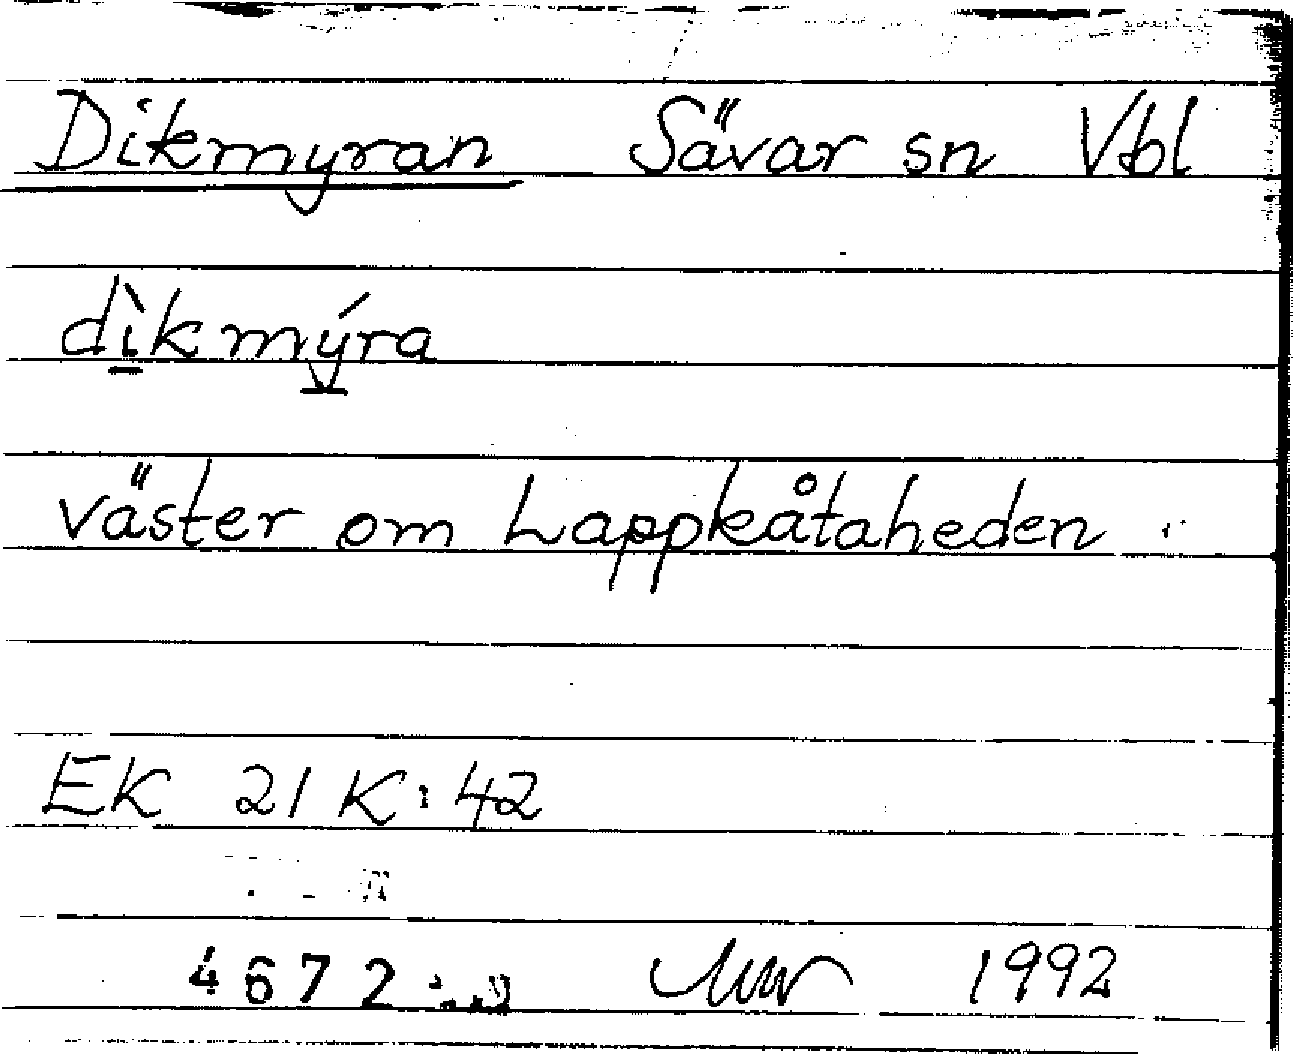 Dikmyran Sävar sn Vbl
dı̲̀kmý̲ra
väster om Lappkåtaheden
EK 21 K:42
4672
1992